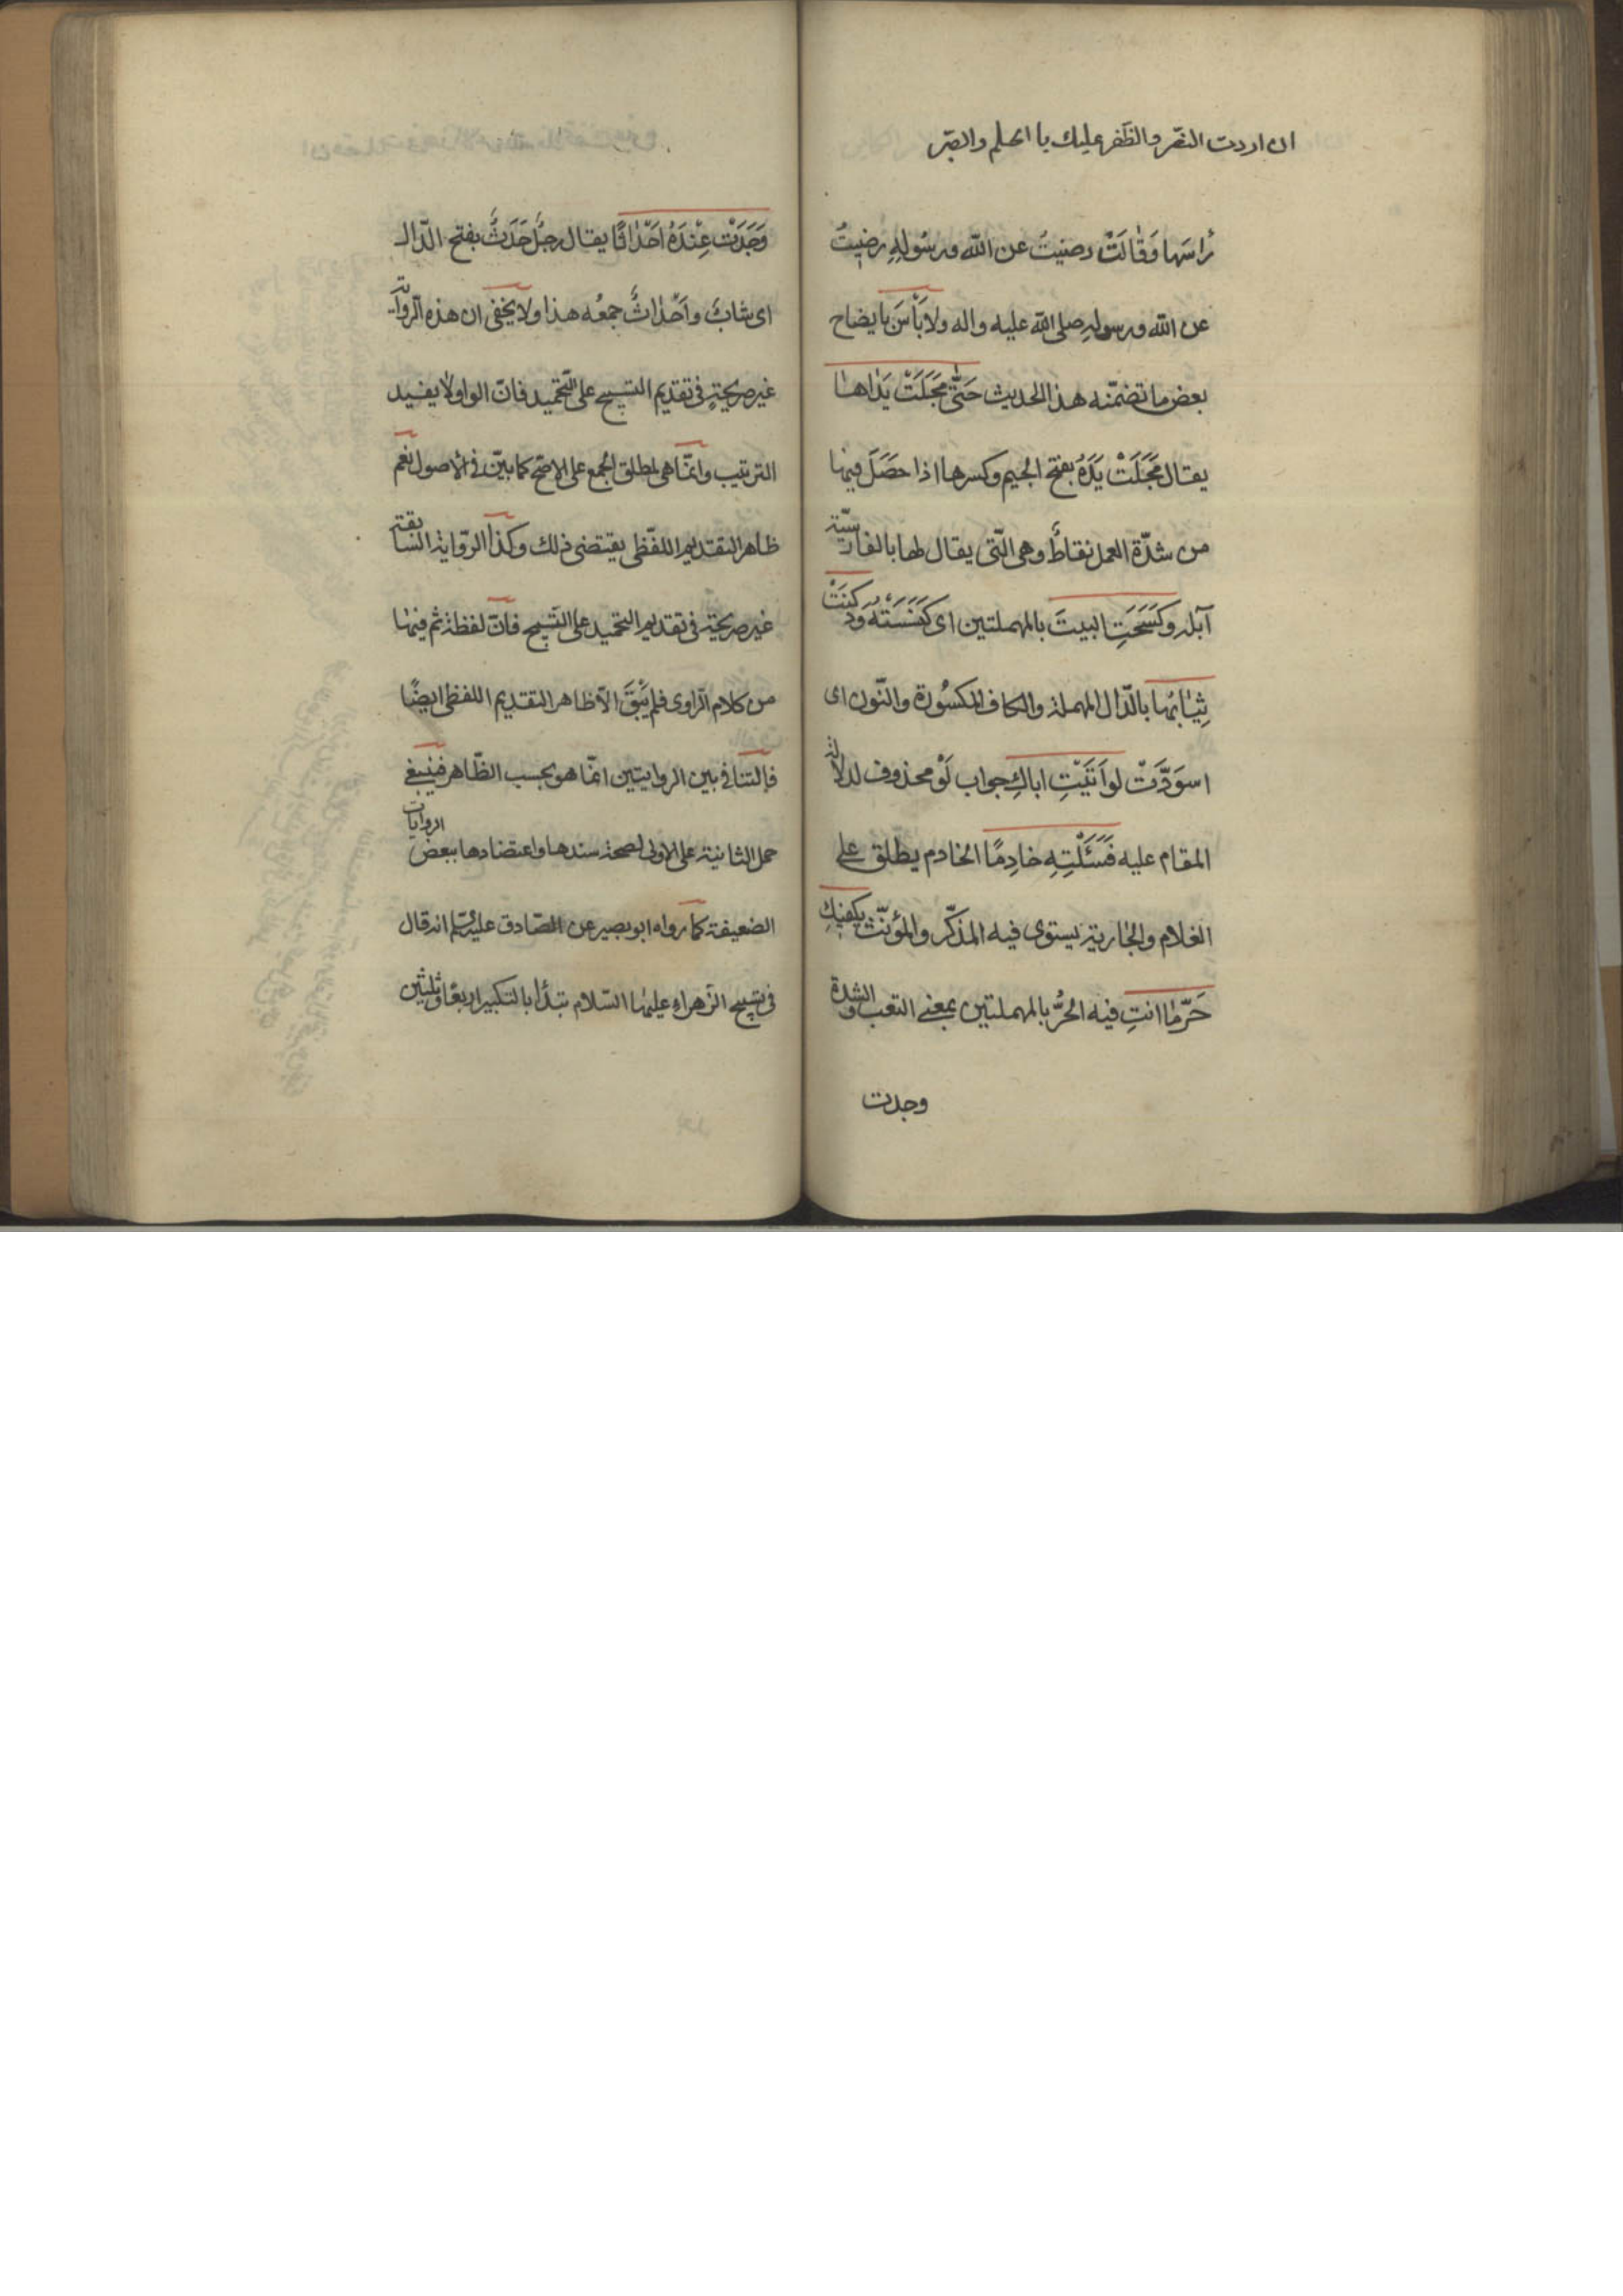 ان اردت النصر والظفر عليك با الحلم والصبر
رَاسَها وَقَالَتْ رضيتُ عن الله ورسُولِهِ رضيتُ
عن الله ورسولهِ صلى الله عليه واله ولا بَأسَ بايضاح
بعض ما تضمّنه هذا الحديث حَتّى مَجَلَتْ يَدَاهَا
يقال مَجَلَتْ يَدَهُ بفتح الجيم وكسرها اذا حَصَلَ فيها
من شدّة العمل نقاطٌ وهى الّتى يقال لها بالفارسيّة
آبله وكَسَحَتِ البيتَ بالمهملتين اى كَنَسَتْهُ ودَكِنَتْ
ثِيَابُهَا بالدّال المهملة والكاف المكسُورة والنّون اى
اسوَدَّتْ لو اَتَيْتِ اباكِ جواب لَوْ محذوف لدلالة
المقام عليه فَسَئَلْتِهِ خادِمًا الخادم يطلق على
الغلام والجارية يستوى فيه المذكّر والمؤنّث يكفيكِ
حَرَّمَا انتِ فيه الحُرُّ بالمهملتين بمعنى التعب والشدة
وجدت
وَجَدَتْ عِنْدَهُ اَحْدَاثًا يقال رجُلٌ حَدَثٌ بفتح الدّال
اى شابٌ واَحْدَاثٌ جمعُه هذا ولا يخفى ان هذه الرّواية
غير صريحةٍ فى تقديم التسبيح على التّحميد فانّ الواو لا يفيد
الترتيب وانّما هى لمطلق الجمع على الاصح كما بيّن فى الاصول نعم
ظاهر التقديم اللفّظى يقتضى ذلك وكذا الرّواية السّابقة
غير صريحة فى تقديم التحميد على التّسبيح فانّ لفظة ثم فيها
من كلام الرّاوى فلم يَبْقَ الّا ظاهر التقديم اللفظى ايضًا
فالتنافى بين الروايتين انّما هو بحسب الظّاهر فينبغى
حمل الثانية على الاولى لصحة سندها واعتضادها ببعض الروايات
الضعيفة كما رواه ابو بصير عن الصّادق عليه السّلم انه قال
فى تسبيح الزهراء عليها السّلام تبدأ بالتكبير اربعًا وثلثين